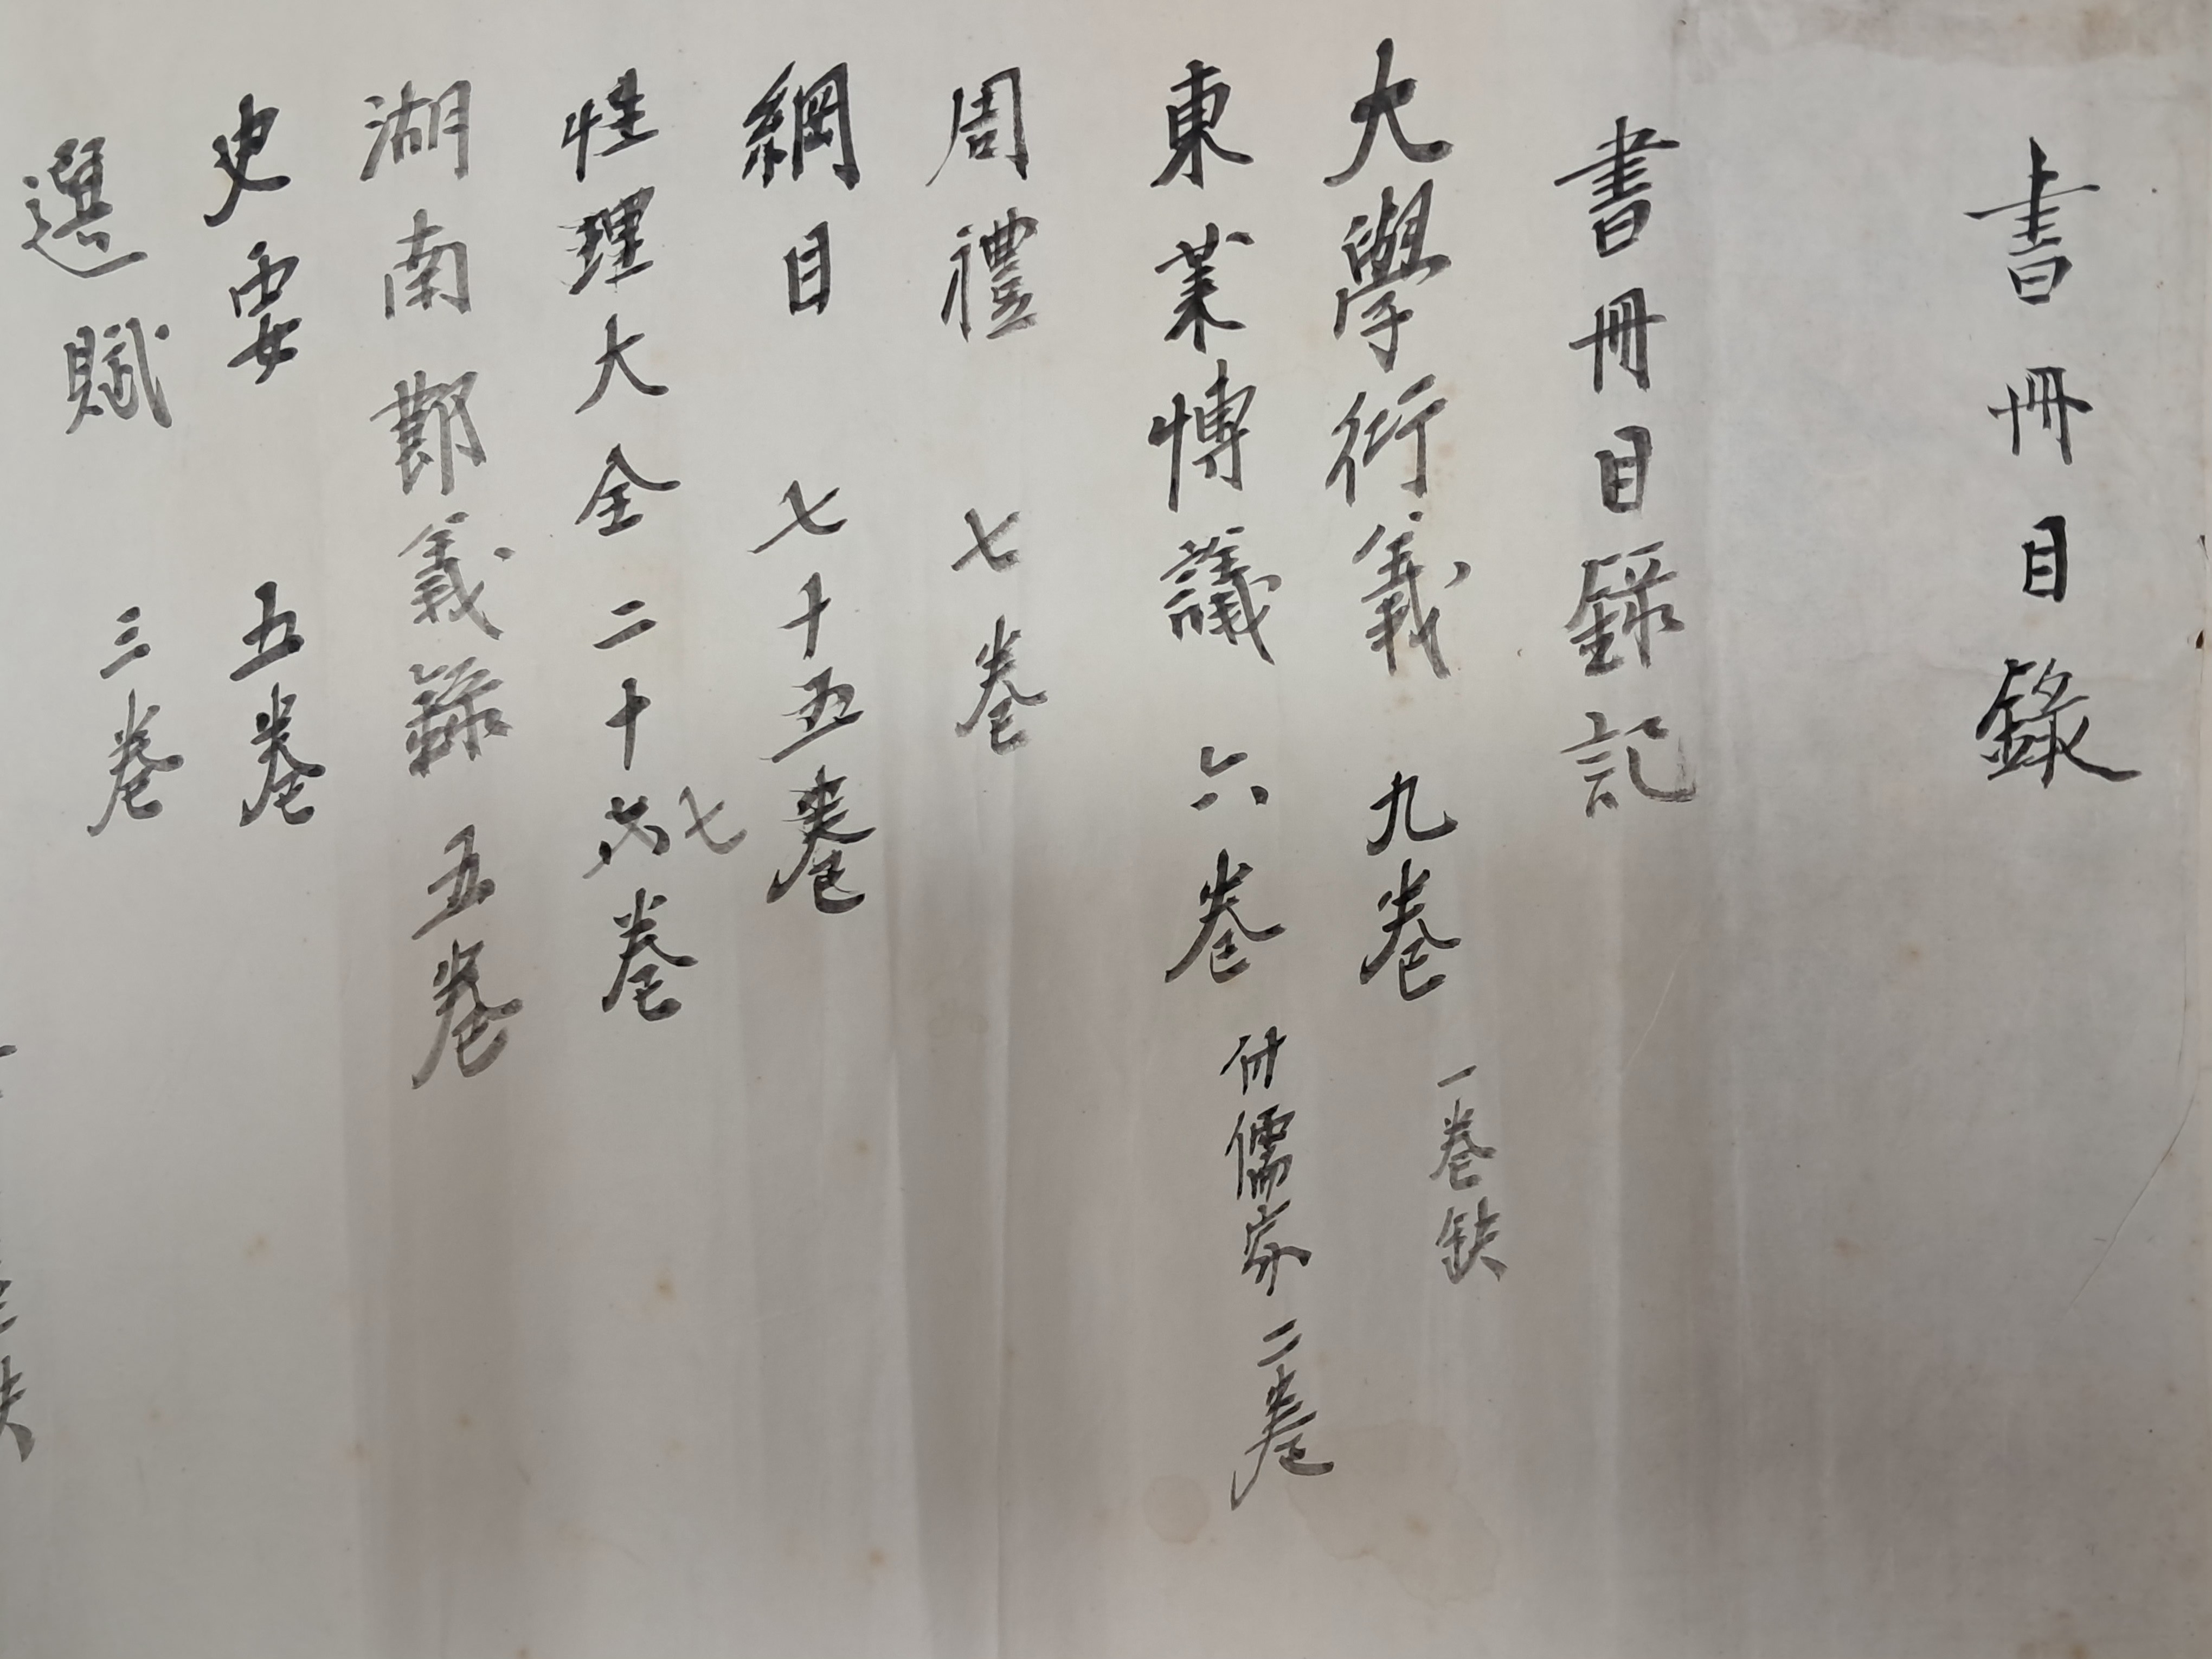 書冊目錄
書冊目錄記
大學衍義 九卷 一卷缺
東業博議 六卷 付儒家二卷
周禮 七卷
綱目 七十五卷
性理大全二十六七卷
湖南鄼義錄 五卷
史要 五卷
選賦 三卷